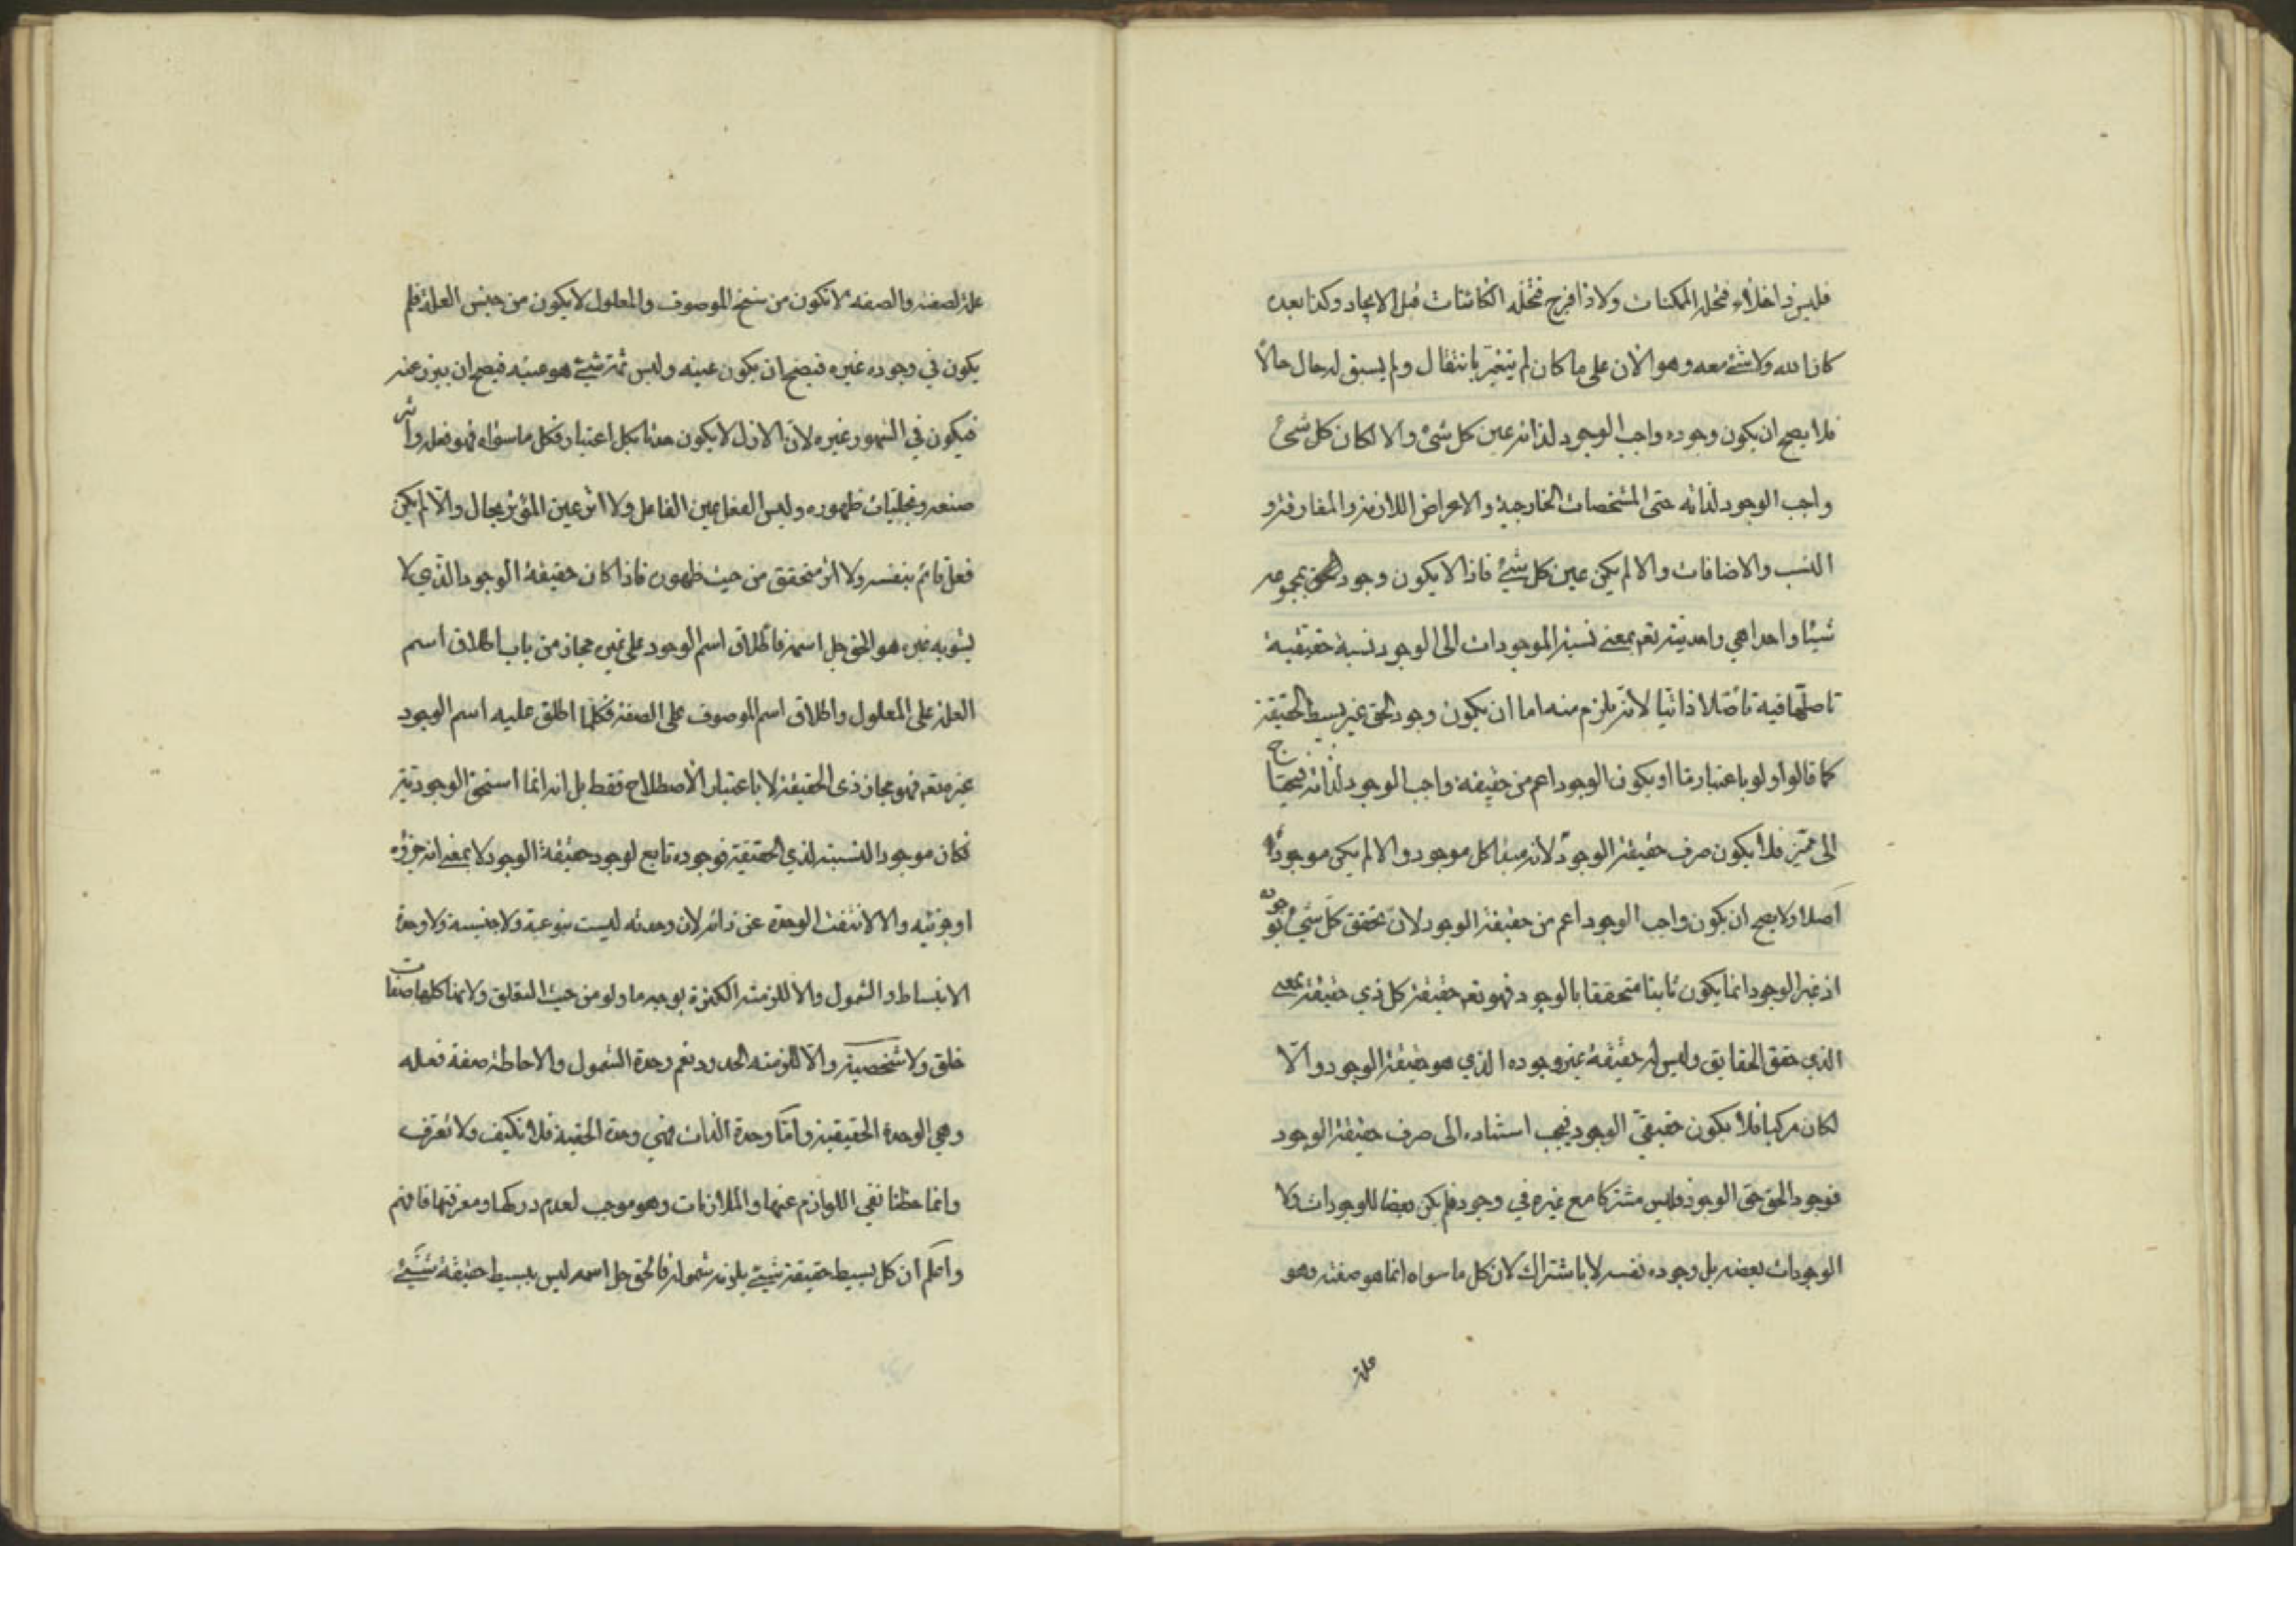 فليس ذا خلاء فتحله الممكنات ولا ذا فرج فتخله الكائنات قبل الايجاد وكذا بعده
كان الله ولا شئ معه وهو الان على ما كان لم يتغير بانتقال ولم يسبق له حال حالا
فلا يصح ان يكون وجوده واجب الوجود لذاته عين كل شئ والا لكان كل شئ
واجب الوجود لذاته حتى المشخصات الخارجية والاعراض اللازمة والمفارقة و
النسب والاضافات والا لم يكن عين كل شئ فاذا لا يكون وجود الحق بمجموعه
شيئا واحدا هي واحديته تعم بمعنى نسبة الموجودات الى الوجود نسبة حقيقية
تاصلها فيه تاصلا ذاتيا لانه يلزم منه اما ان يكون وجود الحق غير بسيط الحقيقة
كما قالوا ولو باعتبار ما او يكون الوجود اعم من حقيقة واجب الوجود لذاته فيحتاج
الى مميز فلا يكون صرف حقيقة الوجود لانه كل موجود والا لم يكن موجودا
اصلا ولا يصح ان يكون واجب الوجود اعم من حقيقة الوجود لان تحقق كل شئ بوجوده
اذ غير الوجود انما يكون ثابتا متحققا بالوجود فهو تعم حقيقة كل ذي حقيقة بمعنى
الذي حقق الحقايق وليس له حقيقة غير وجوده الذي هو حقيقة الوجود والا
لكان مركبا فلا يكون حقيقي الوجود فيجب استناده الى صرف حقيقة الوجود
فوجود الحق حق الوجود فليس مشتركا مع غيره في وجود فلم يكن بعضا للوجودات ولا
الوجودات بعضه بل وجوده نفسه لا باشتراك لان كل ما سواه انما هو صفته وهو
علة
علة لصفته والصفة لا تكون من سنخ الموصوف والمعلول لا يكون من جنس العلة فلم
يكون في وجوده غيره فيصح ان يكون عينه وليس ثمة شئ هو عينه فيصح ان يبرز عنه
فيكون في الشهود غيره لان الازل لا يكون حدثا بكل اعتبار فكل ما سواه فهو فعله واثر
صنعه وتجليات ظهوره وليس الفعل عين الفاعل ولا اثر عين المؤثر بحال والا لم يكن
فعل قائم بنفسه ولا اثر متحقق من حيث ظهوره فاذا كان حقيقة الوجود الذي لا
يشوبه غيره هو الحق جل اسمه فاطلاق اسم الوجود على غيره مجاز من باب اطلاق اسم
العلة على المعلول واطلاق اسم الموصوف على الصفة فكلما اطلق عليه اسم الوجود
غيره تعم فهو مجاز ذي الحقيقة لا باعتبار الاصطلاح فقط بل انه انما استحق الوجودية
فكان موجودا لنسبته لذي الحقيقة فوجوده تابع لوجود حقيقة الوجود لا بمعنى انه جزؤه
او جزئيه والا لانتفت الوحدة عن ذاته لان وحدته ليست نوعية ولا جنسية ولا وحدة
الانبساط والشمول والا للزمته الكثرة بوجه ما ولو من حيث التعلق ولانها كلها صفات
خلق ولا شخصية والا للزمته الحدود نعم وحدة الشمول والاحاطة صفة فعله
وهي الوحدة الحقيقية واما وحدة الذات فهي وحدة الحقية فلا تكيف ولا تعرف
وانما حظنا نفي اللوازم عنها والملازمات وهو موجب لعدم دركها ومعرفتها فافهم
واعلم ان كل بسيط حقيقة شئ يلزمه شموله فالحق جل اسمه ليس ببسيط حقيقة شئ